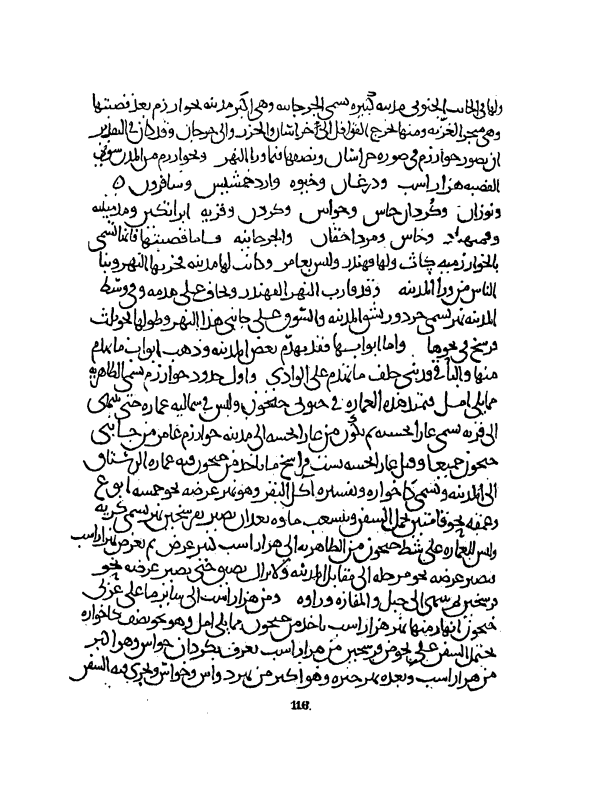 ولها في الجانب الجنوبي مدينة كبيرة تسمى الجرجانية وهي أكبر مدينة بخوارزم بعد قصبتها
وهي متجر الغزية ومنها تخرج القوافل إلى خراسان والخزر وإلى جرجان وقد كان في التقدير
ان نصور خوارزم في صورة خراسان ونصفها فيما ورا النهر ولخوارزم من المدن سوى
القصبة هزاراسب ودرغان وخيوه واردخشميثن وسافردز
ونوزان وكردران خاس وخواس وكردر وقرية ابراتكين ومدمينية
وخاس ومرداجقان والجرجانية واما قصبتها فانها تسمى
بالخوارزمية كاث ولها قهندز وليس بعامر وكانت لها مدينة فخربها النهر وبنا
الناس من ورا المدينة وقد قارب النهر القهندز ويخاف على هدمه وفي وسط
المدينة نهر يسمى جردور يشق المدينة والسوق على جانبي هذا النهر وطولها نحو ثلث
فرسخ في نحوها واما ابوابها فقد تهدم بعض المدينة وذهب ابواب ما تهدم
منها والباقي قد بني خلف ما تهدم على الوادي واول حدود خوارزم تسمى الطاهرية
مما يلي امل فتمتد هذه العمارة في جنوبي جيحون وليس في شماليه عمارة حتى تنتهى
الى قرية تسمى غارابخشنه ثم تكون من غارابخشنه الى مدينة خوارزم عامر من جانبي
جيحون جميعا وقبل غارابخشنه بستة فراسخ نهر ياخذ من جيحون فيه عمارة الرستاق
الى المدينة ويسمى كاخواره وتفسيره اكل البقر وهو نهر عرضه نحو خمسة ابوع
وعمقه نحو قامتين يحمل السفن ويتشعب من كاوخواره بعد ان يصير فرسخين نهر يسمى كريه
وليس للعمارة على شط جيحون من الطاهرية الى هزاراسب كبير عرض ثم يعرض بهزاراسب
ويصير عرضه نحو مرحلة الى مقابل المدينة ولا يزال يضيق حتى يصير عرضه نحو
فرسخين ثم ينتهى الى جبل والمفازة وراه ومن هزاراسب الى سايرها على غربي
جيحون انهار منها نهر هزاراسب ياخذ من جيحون مما يلي امل وهو نحو نصف كاخواره
يحمل السفن على نحو من فرسخين من هزاراسب نهر يعرف بكردران خواس وهو اكبر
من هزاراسب وبعده نهر خيوه وهو اكبر من نهر كردران خواس وتجري فيه السفن
116.